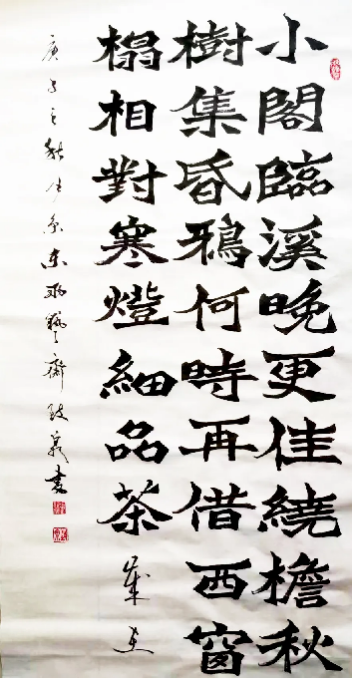 小閣臨溪晚更佳繞檐秋
樹集昏鴉何時再借西窗
榻相對寒燈細品茶
庚子之秋 京東 齋 書